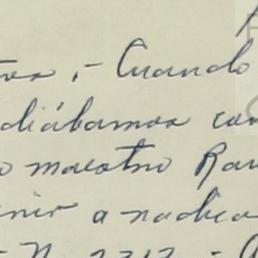 tros,- Cuando
diábamos con
o maestro Ra
enir a nadie